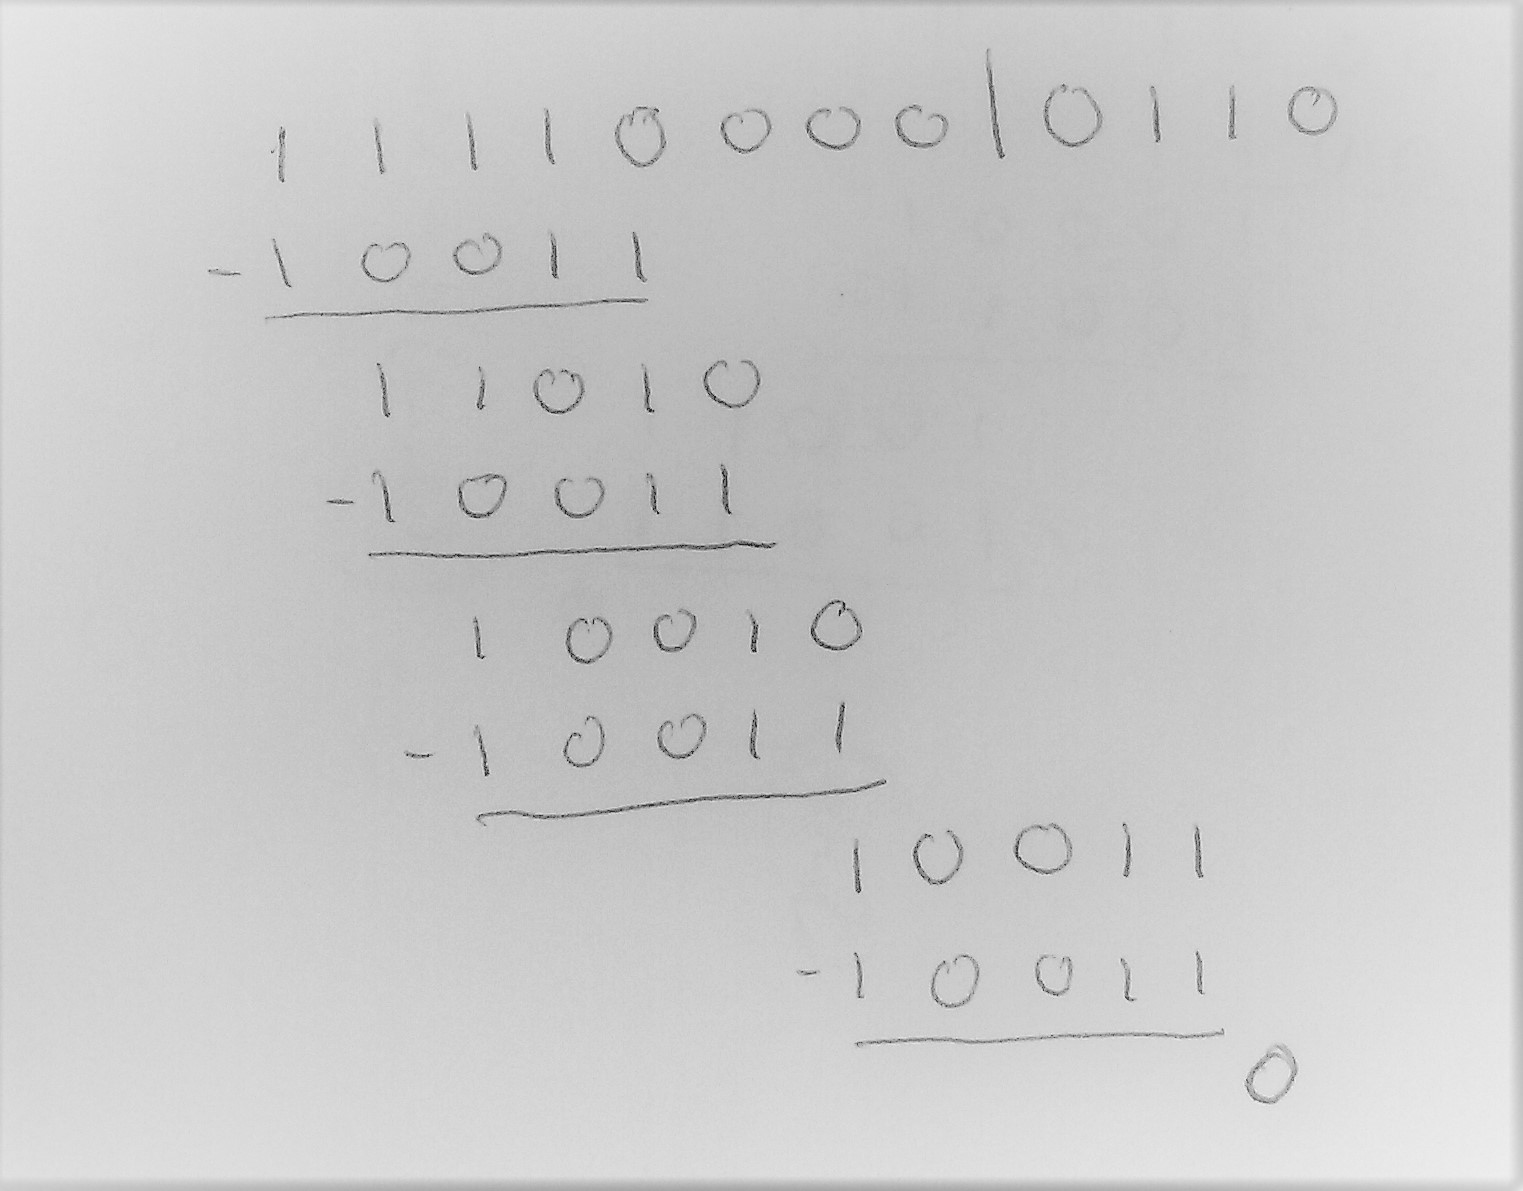 1 1 1 1 0 0 0 0 | 0 1 1 0
- 1 0 0 1 1
1 1 0 1 0
- 1 0 0 1 1
1 0 0 1 0
- 1 0 0 1 1
1 0 0 1 1
- 1 0 0 1 1
0